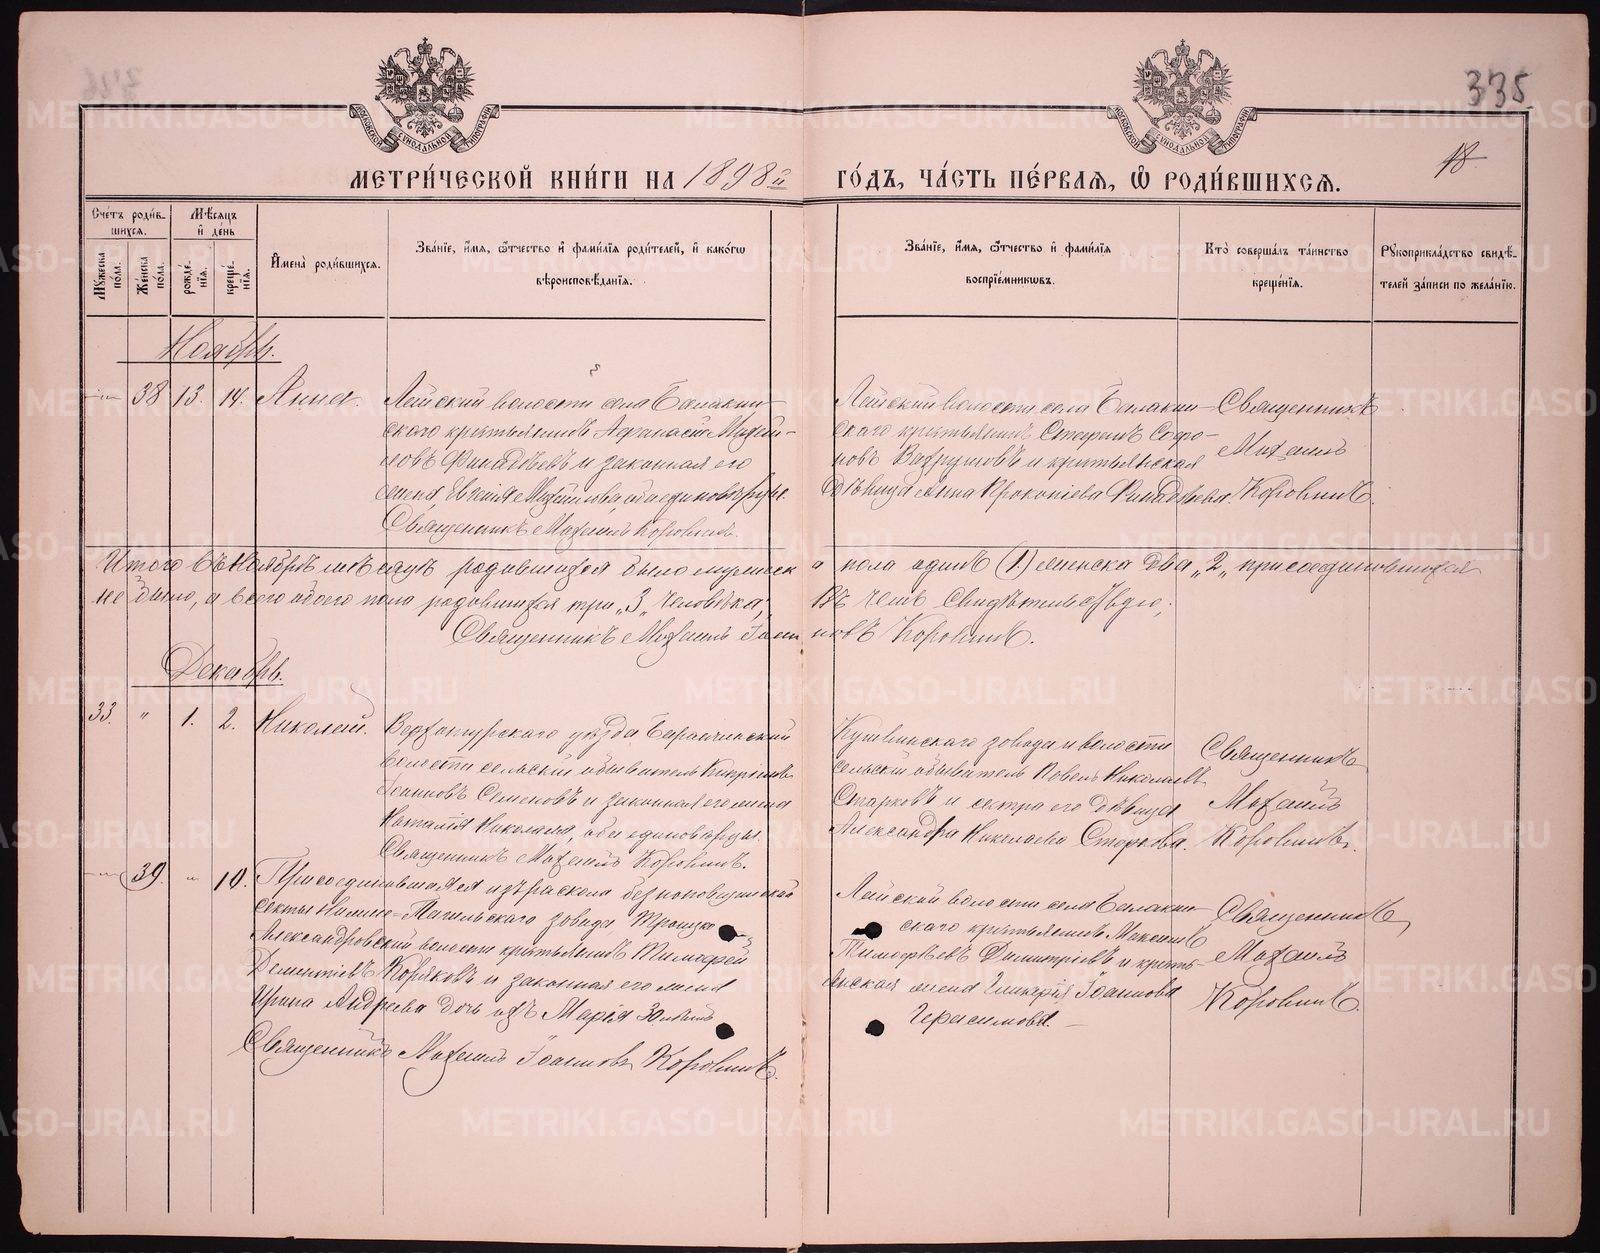 335
18
МЕТРИ́ЧЕСКОЙ КНИ́ГИ НА 1898й ГО́ДЪ, ЧА́СТЬ ПЕ́РВАЯ, Ѡ РОДИ́ВШИХСЯ.
Сче́тъ роди́в-
шихся.
Мѣ́сяцъ
и҆ день
Му́жеска
пола.
Же́нска
пола.
рожде́-
нїя.
креще́-
нїя.
И҆мена̀ роди́вшихся.
Зва́нїе, и҆́мя, ѻ҆́тчество и҆ фами́лїя роди́телей, и҆ како́гѡ
вѣроисповѣ́данїя.
Зва́нїе, и҆́мя, ѻ҆́тчество и҆ фами́лїя
воспрїе́мникѡвъ.
Кто̀ соверша́лъ та́инство
креще́нїя.
Рꙋкоприкла́дство свидѣ́-
телей за́писи по жела́нїю.
Ноябрь.
38 13. 14. Анна.
Лайской волости села Балакин-
скаго крестьянинъ Афанасій
и законная его
жена Евгенія
Священникъ Михаилъ Коровинъ.
Лайской волости села Балакин-
скаго крестьянинъ Стефанъ Софро-
новъ Вахрушовъ и крестьянская
дѣвица Анна Прокопіева
Священникъ
Михаилъ
Коровинъ.
Итого въ Ноябрѣ мѣсяцѣ родившихся было мужеска пола одинъ (1) женска два „2„ присоединившихся
не было, а всего обоего пола родившихся три „3„ человѣка; Въ чемъ свидѣтельствую,
Священникъ Михаилъ Іоанновъ Коровинъ.
Декабрь.
33. „ 1. 2. Николай.
Верхотурскаго уѣзда Баранчинской
волости сельскій обыватель
Іоанновъ Семеновъ и законная его жена
Наталія Николаева, оба единовѣрцы.
Священникъ Михаилъ Коровинъ.
Кушвинскаго завода и волости
сельскій обыватель Павелъ Николаевъ
Старковъ и сестра его дѣвица
Александра Николаева Старкова.
Священникъ
Михаилъ
Коровинъ.
39. „ 10. Присоединившаяся изъ раскола безпоповщинской
секты Нижне-Тагильскаго завода Троицко
Александровской волости крестьянинъ Тимофей
Дементіевъ Коряковъ и законная его жена
Ирина Андреева дочь ихъ Марія 30 лѣтъ
Священникъ Михаилъ Іоанновъ Коровинъ.
Лайской волости села Балакин-
скаго крестьянинъ Максимъ
Тимофѣевъ Димитріевъ и кресть-
янская жена Гликерія Іоаннова
Герасимова.
Священникъ
Михаилъ
Коровинъ.
METRIKI.GASO-URAL.RU